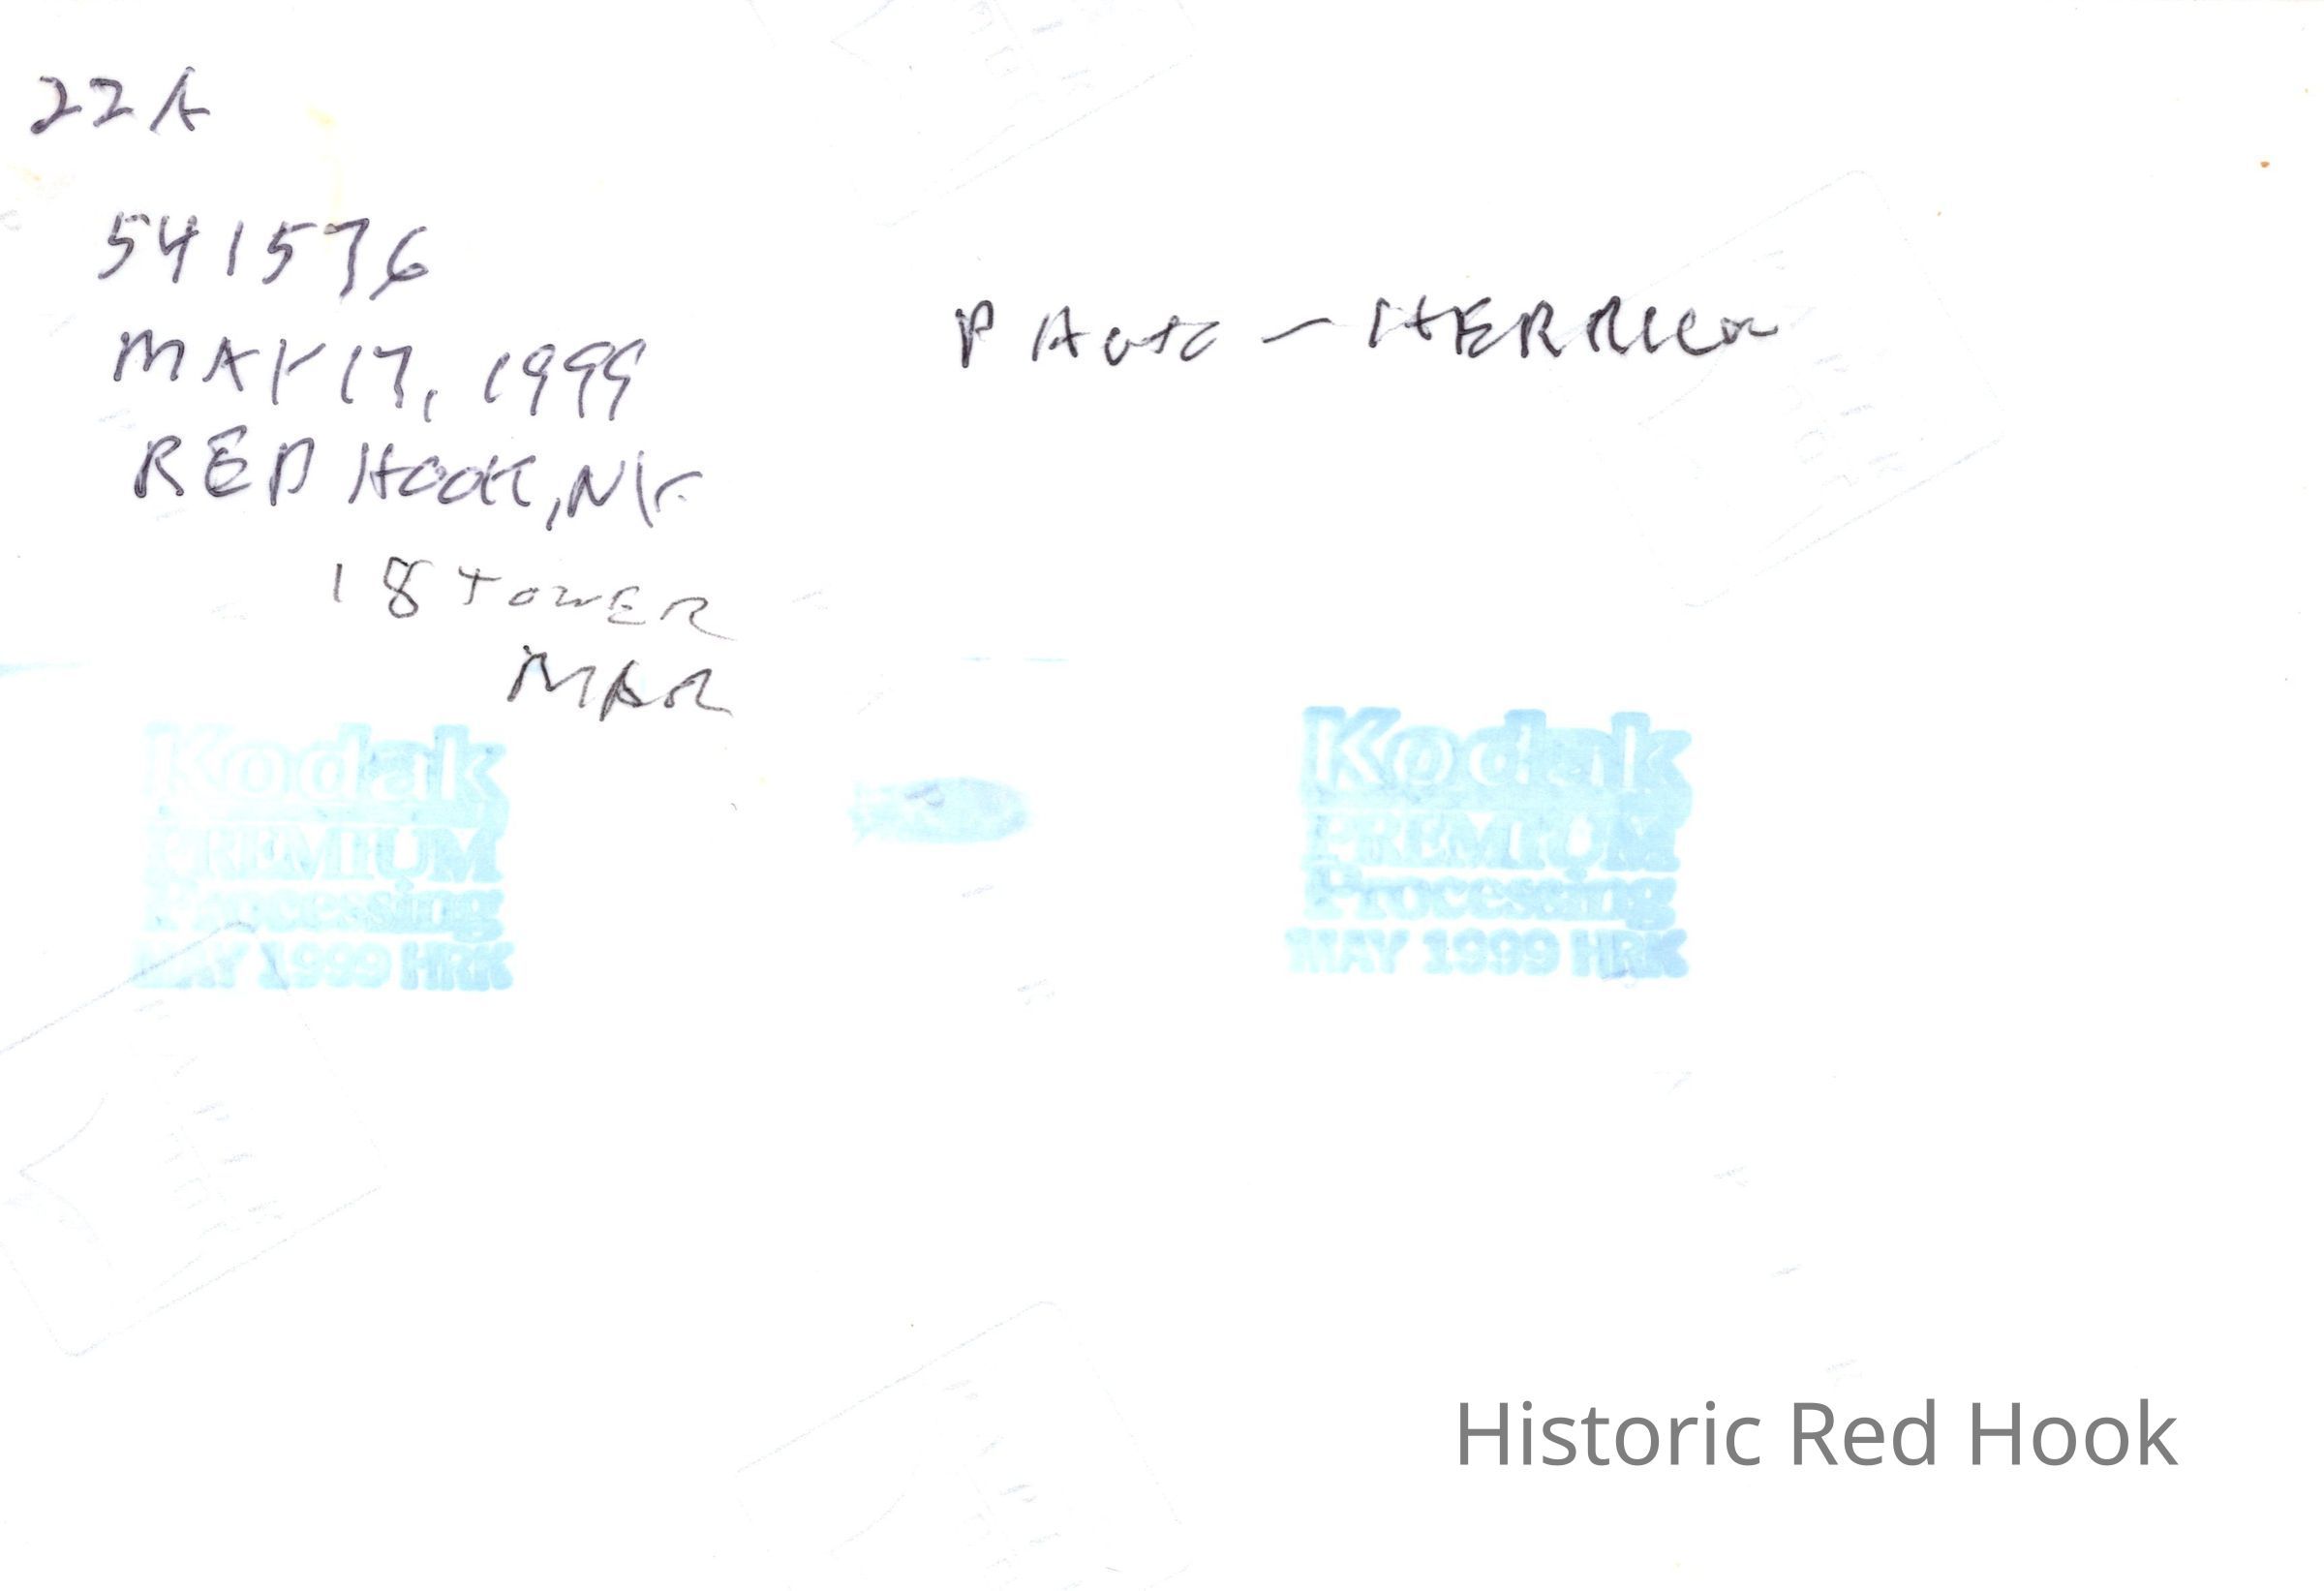 22A
541576
MAY 17, 1999
RED HOOK, NY
18 TOWER
MAR
P Auto - HERRICK
Kodak
PREMIUM
Processing
MAY 1999 HRK
Kodak
PREMIUM
Processing
MAY 1999 HRK
Historic Red Hook